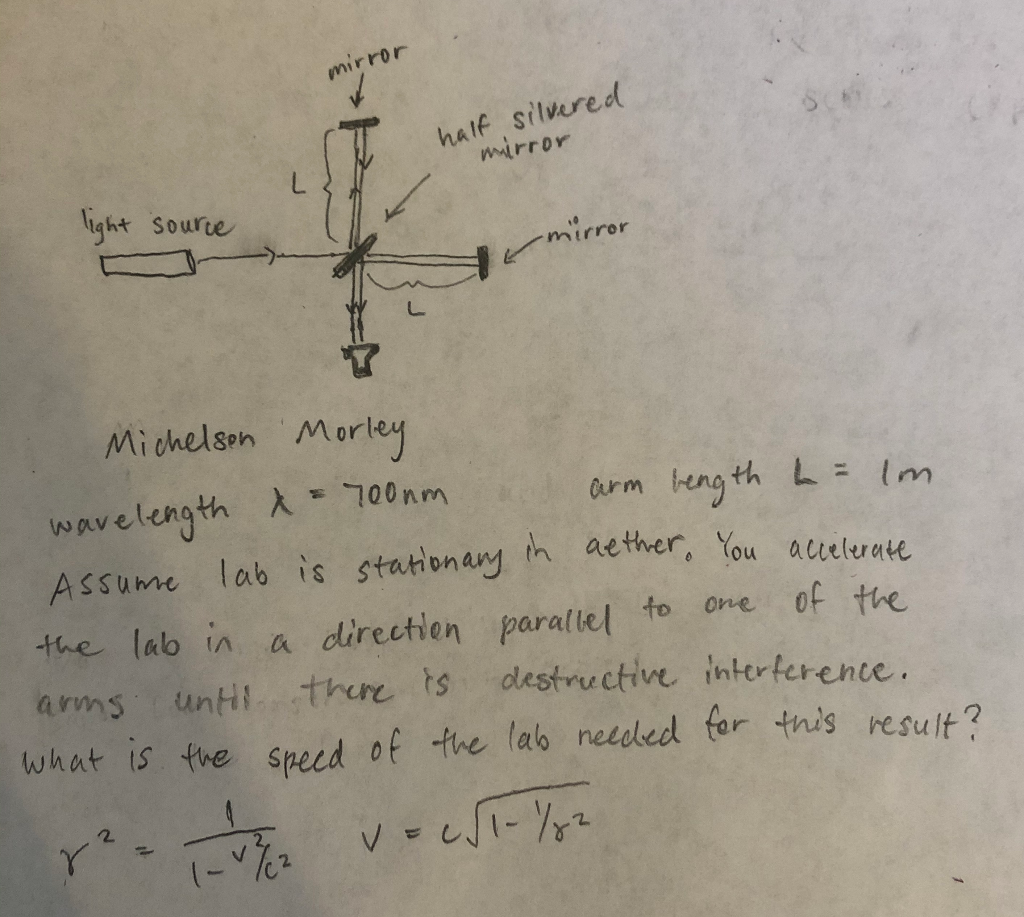 mirror
half silvered
mirror
L
light source
mirror
L
Michelson Morley
wavelength λ = 700nm arm length L = 1m
Assume lab is stationary in aether. You accelerate
the lab in a direction parallel to one of the
arms until there is destructive interference.
What is the speed of the lab needed for this result?
γ² = 1/(1-v²/c²) v = c√(1-1/γ²)